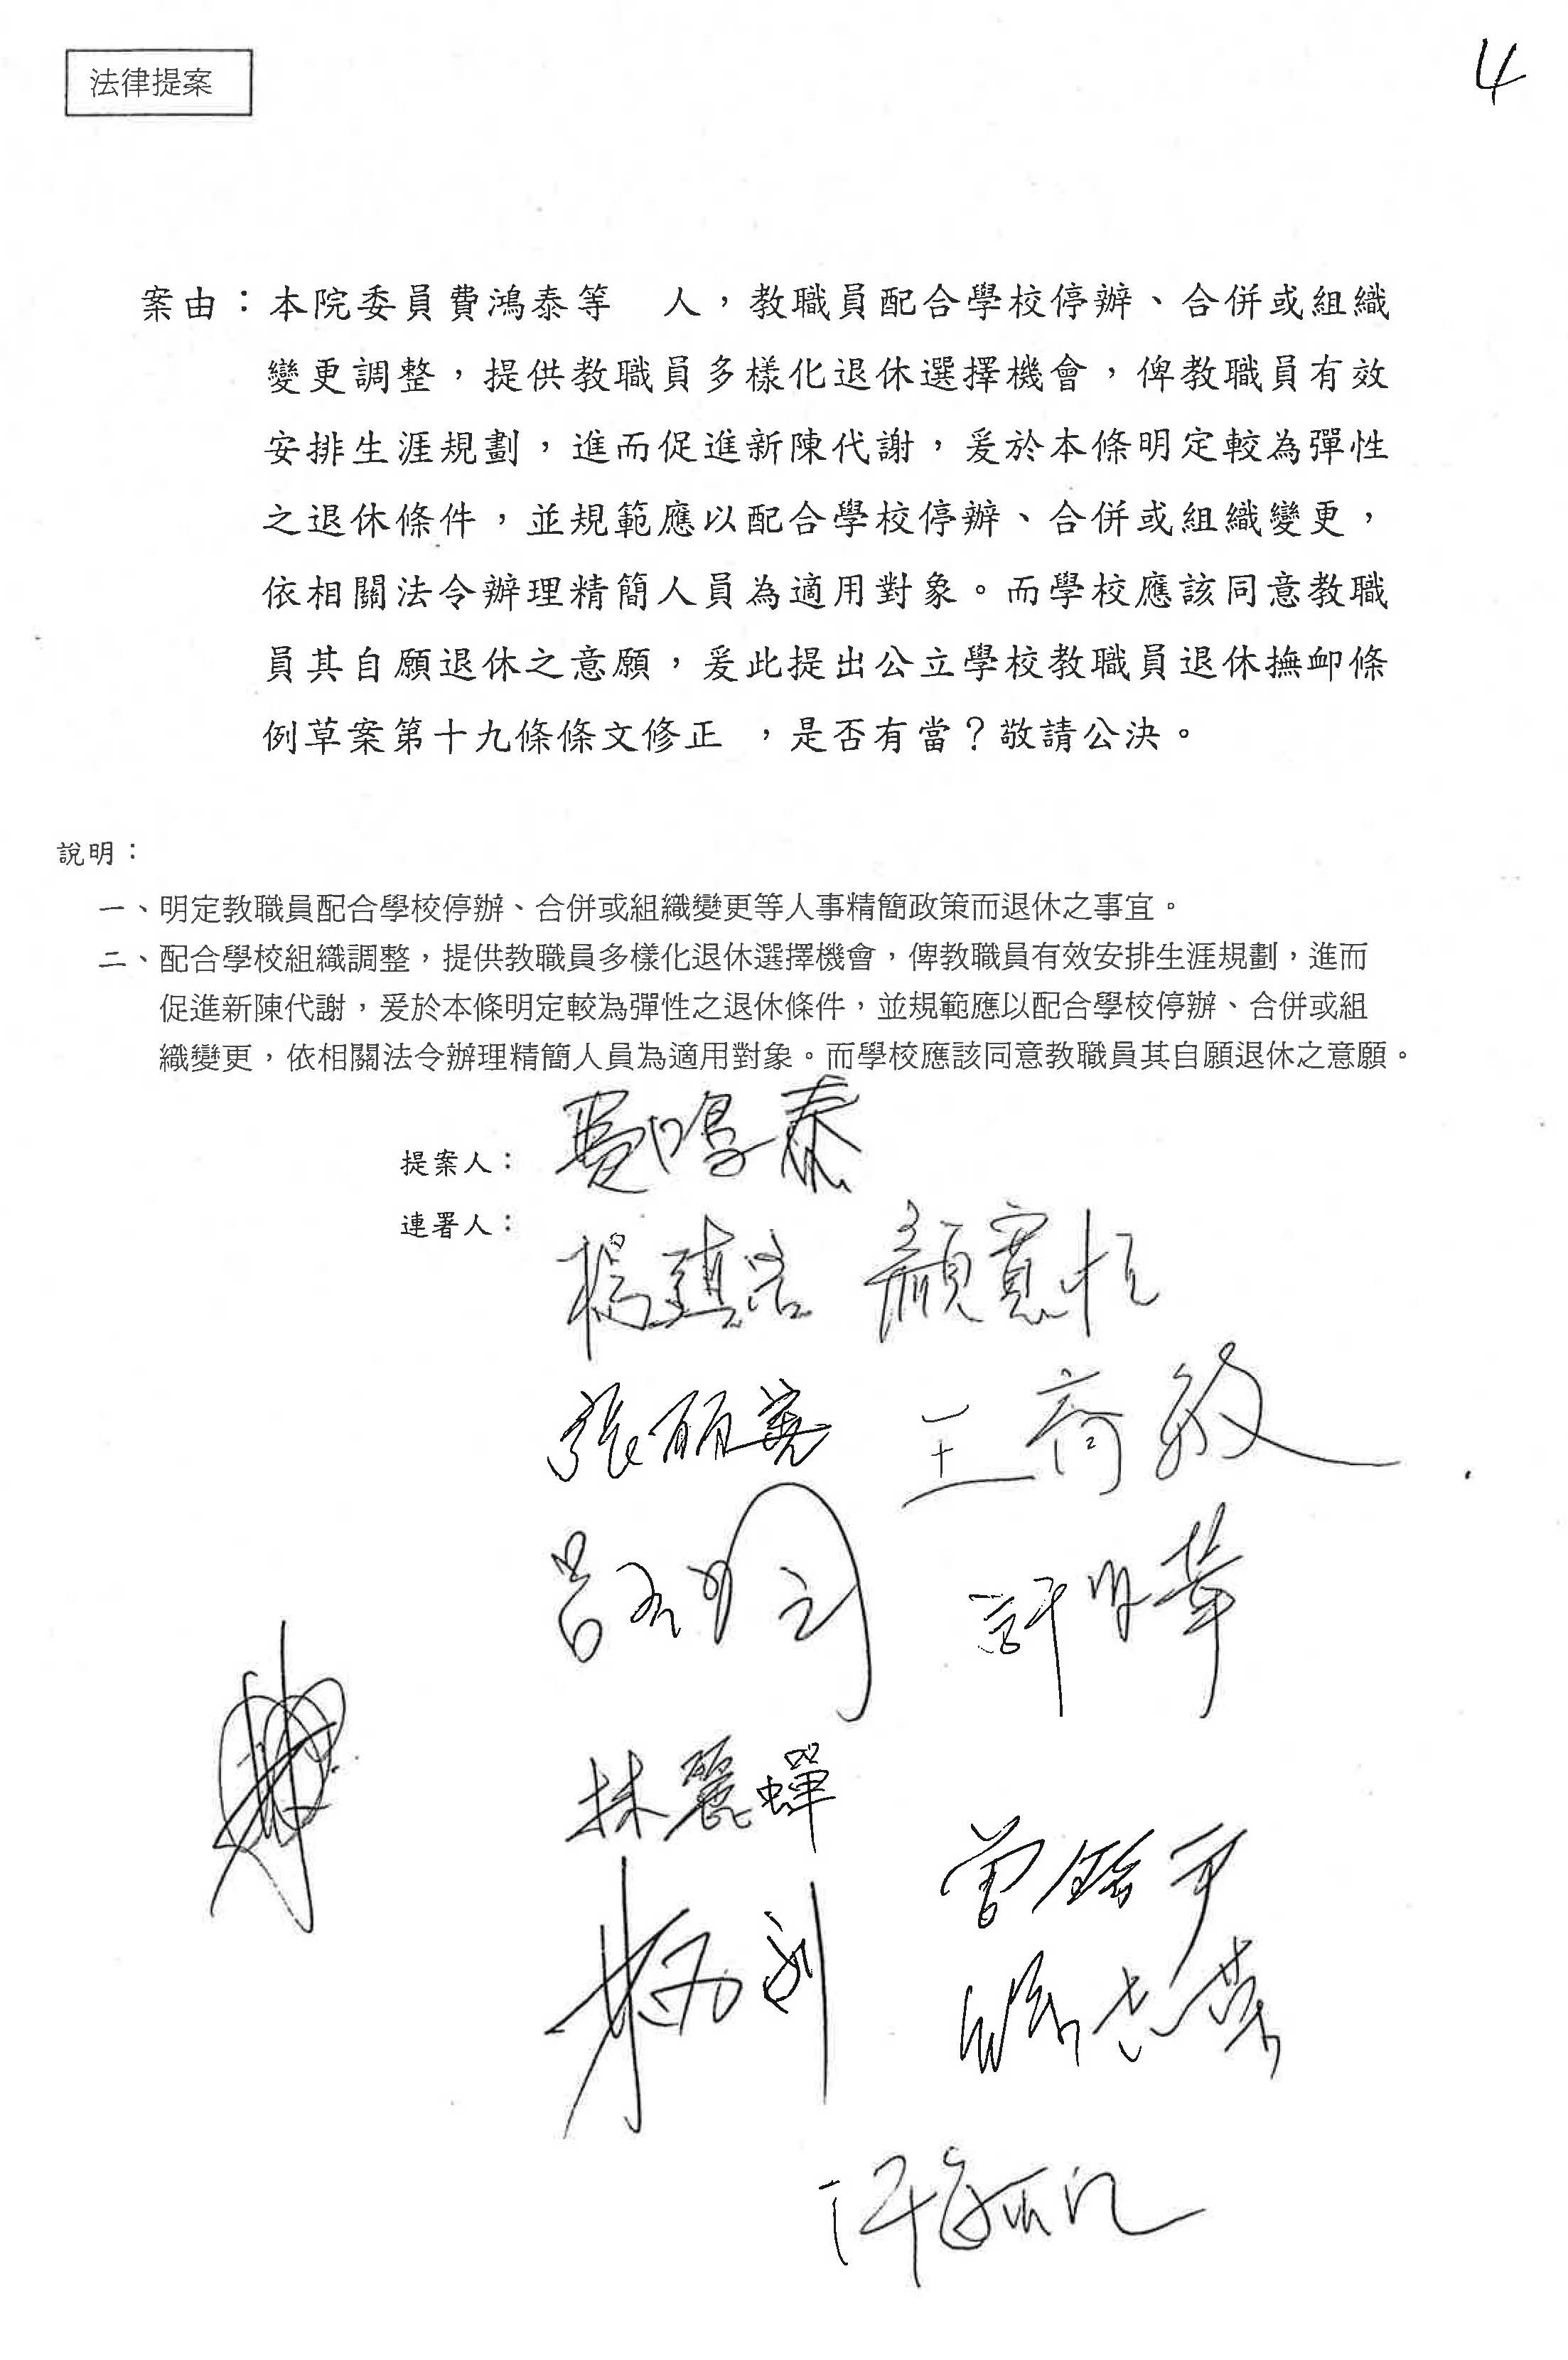 法律提案
4
案由：本院委員費鴻泰等　人，教職員配合學校停辦、合併或組織
變更調整，提供教職員多樣化退休選擇機會，俾教職員有效
安排生涯規劃，進而促進新陳代謝，爰於本條明定較為彈性
之退休條件，並規範應以配合學校停辦、合併或組織變更，
依相關法令辦理精簡人員為適用對象。而學校應該同意教職
員其自願退休之意願，爰此提出公立學校教職員退休撫卹條
例草案第十九條條文修正 ，是否有當？敬請公決。
說明：
一、明定教職員配合學校停辦、合併或組織變更等人事精簡政策而退休之事宜。
二、配合學校組織調整，提供教職員多樣化退休選擇機會，俾教職員有效安排生涯規劃，進而
促進新陳代謝，爰於本條明定較為彈性之退休條件，並規範應以配合學校停辦、合併或組
織變更，依相關法令辦理精簡人員為適用對象。而學校應該同意教職員其自願退休之意願。
提案人：費鴻泰
連署人：
楊鎮浯 顏寬恒
張麗善
林麗蟬